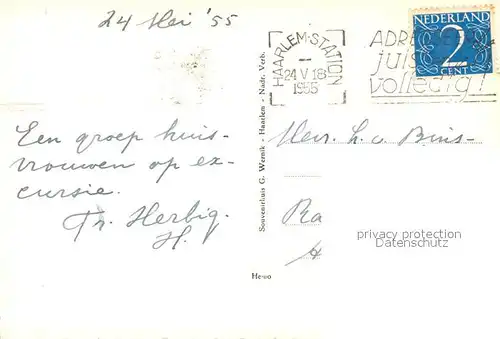 24 Mei '55
HAARLEM-STATION
24 V 18
1955
ADRE
juis
volledig!
NEDERLAND
2
CENT
Een groep huis-
vrouwen op ex-
cursie.
Tr. Herbig.
H.
Souvenirhuis G. Wernik - Haarlem - Nadr. Verb.
Hemo
Heer. L. v. Buis-
Ra
privacy protection
Datenschutz